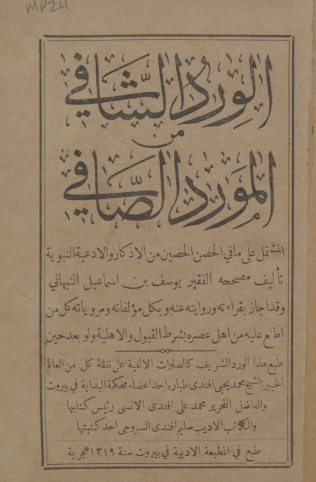 MP24
الورد الشافي
من
المورد الصافي
المشتمل على ما في الحصن الحصين من الاذكار والادعية النبوية
تأليف مصححه الفقير يوسف بن اسماعيل النبهاني
وقد اجاز بقراءته وروايته عنه وبكل مؤلفاته ومروياته كل من
اطلع عليه من اهل عصره بشرط القبول والاهلية ولو بعد حين
طبع هذا الورد الشريف كالصلوات الالفية على نفقة كل من العالم
الخبير الشيخ محمد يحيى افندي طباره احد اعضاء محكمة البداية في بيروت
والفاضل النحرير محمد علي افندي الانسي رئيس كتابها
والكاتب الاديب سليم افندي السروجي احد كتبتها
طبع في المطبعة الادبية في بيروت سنة ١٣١٩ هجرية